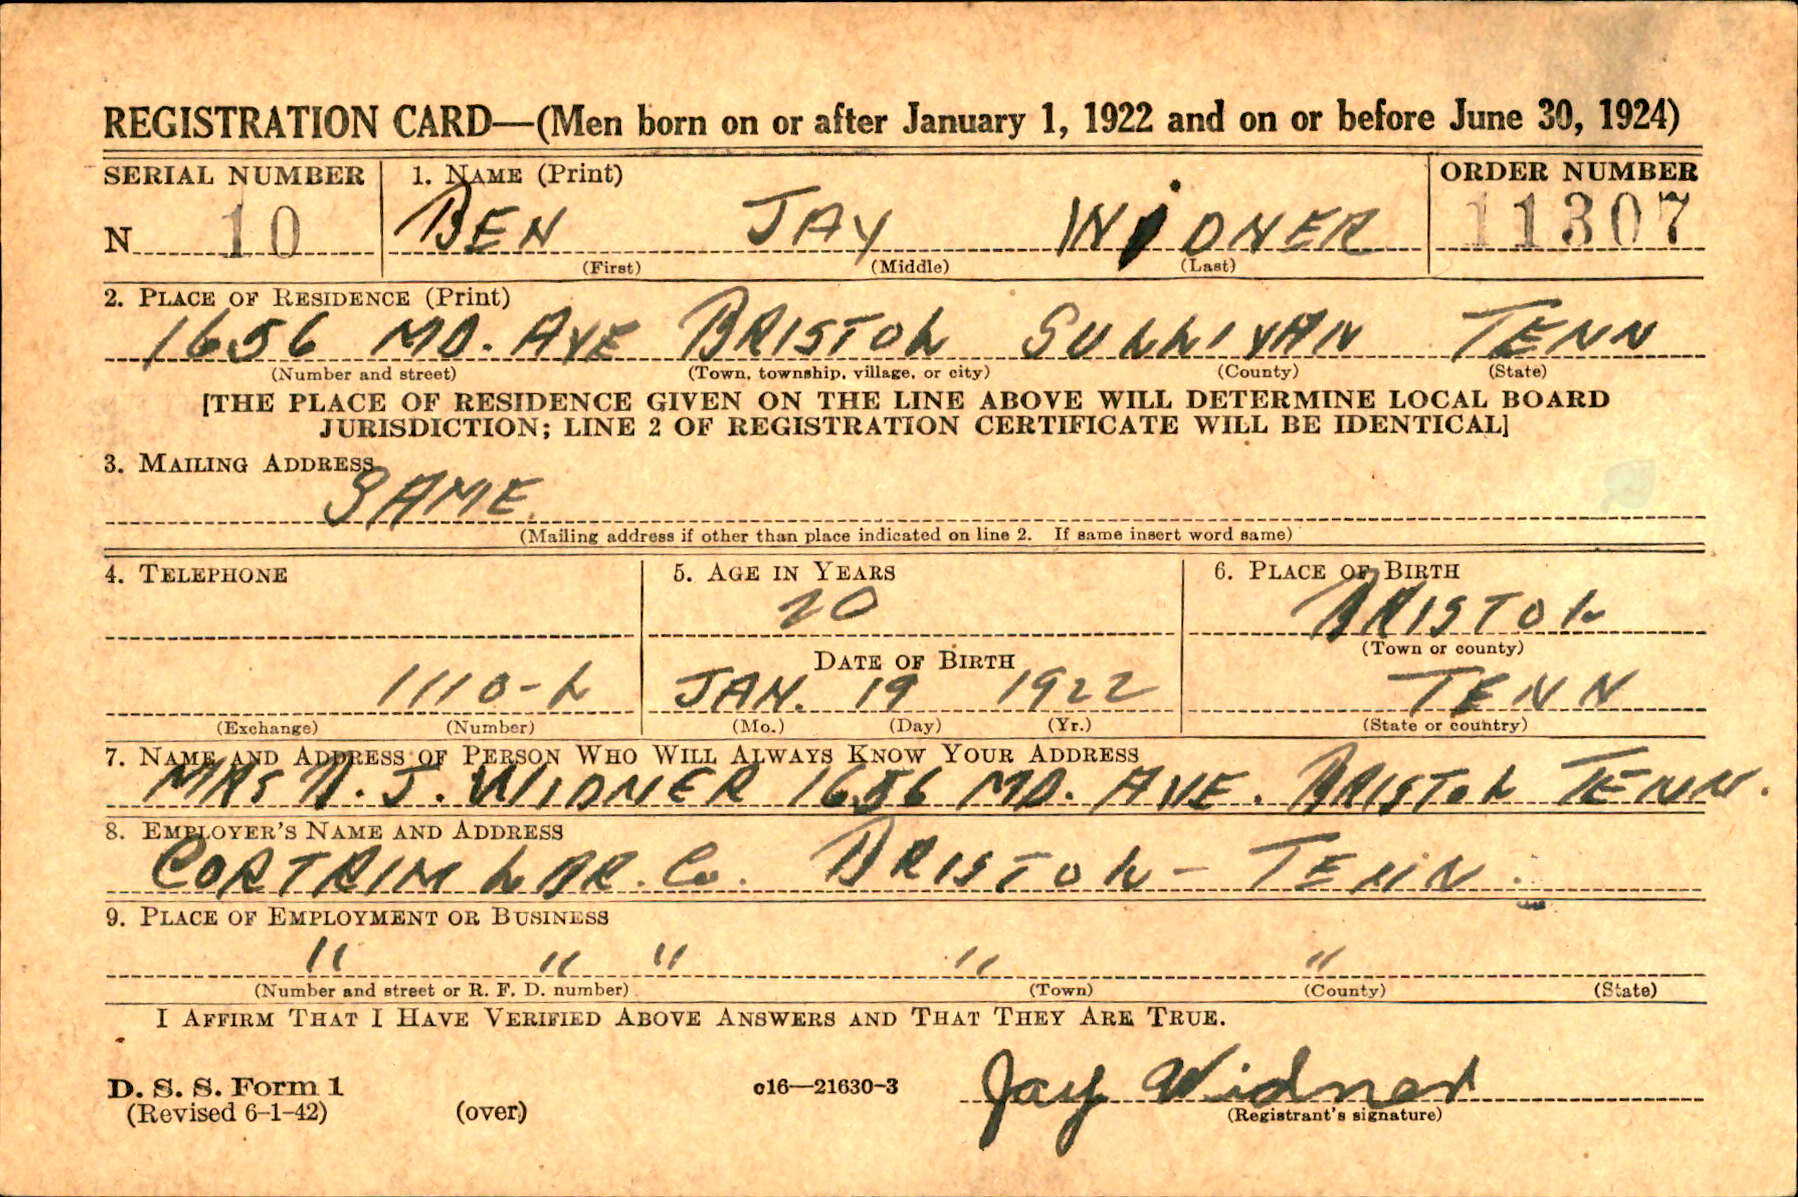 REGISTRATION CARD—(Men born on or after January 1, 1922 and on or before June 30, 1924)
SERIAL NUMBER 1. NAME (Print) ORDER NUMBER
N 10 BEN JAY WIDNER 11307
(First) (Middle) (Last)
2. PLACE OF RESIDENCE (Print)
1656 MD. AVE BRISTOL SULLIVAN TENN
(Number and street) (Town, township, village, or city) (County) (State)
[THE PLACE OF RESIDENCE GIVEN ON THE LINE ABOVE WILL DETERMINE LOCAL BOARD
JURISDICTION; LINE 2 OF REGISTRATION CERTIFICATE WILL BE IDENTICAL]
3. MAILING ADDRESS
SAME.
(Mailing address if other than place indicated on line 2. If same insert word same)
4. TELEPHONE 5. AGE IN YEARS 6. PLACE OF BIRTH
20 BRISTOL
(Town or county)
DATE OF BIRTH
1110-L JAN. 19 1922 TENN
(Exchange) (Number) (Mo.) (Day) (Yr.) (State or country)
7. NAME AND ADDRESS OF PERSON WHO WILL ALWAYS KNOW YOUR ADDRESS
MRS N. J. WIDNER 1656 MD. AVE. BRISTOL TENN.
8. EMPLOYER'S NAME AND ADDRESS
CORTRIM LBR. Co. BRISTOL - TENN.
9. PLACE OF EMPLOYMENT OR BUSINESS
" " " " "
(Number and street or R. F. D. number) (Town) (County) (State)
I AFFIRM THAT I HAVE VERIFIED ABOVE ANSWERS AND THAT THEY ARE TRUE.
D. S. S. Form 1 c16—21630-3 Jay Widner
(Revised 6-1-42) (over) (Registrant's signature)